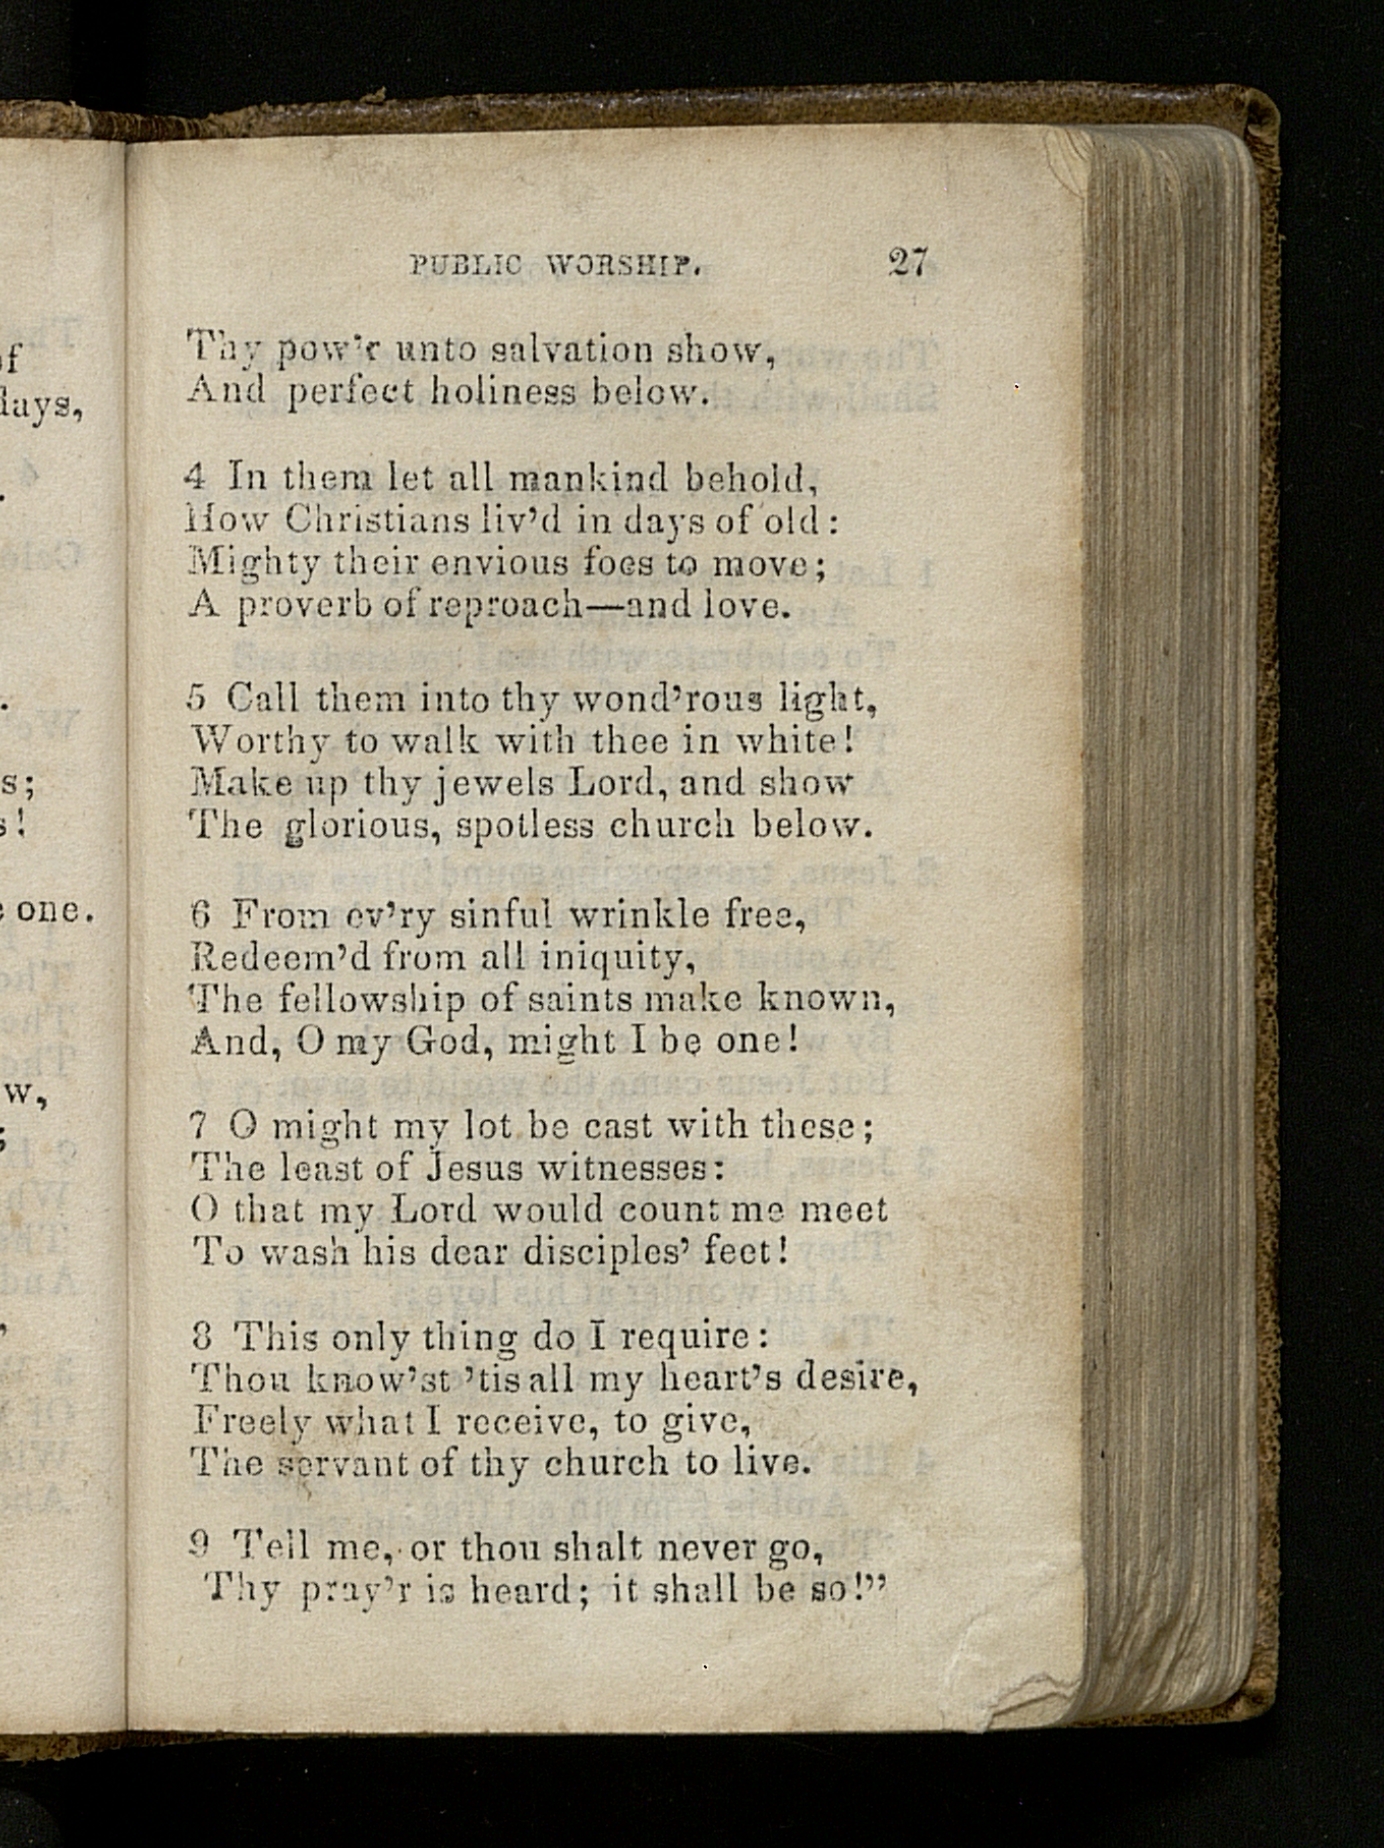 PUBLIC WORSHIP. 27
Thy pow'r unto salvation show,
And perfect holiness below.
4 In them let all mankind behold,
How Christians liv'd in days of old:
Mighty their envious foes to move;
A proverb of reproach—and love.
5 Call them into thy wond'rous light,
Worthy to walk with thee in white!
Make up thy jewels Lord, and show
The glorious, spotless church below.
6 From ev'ry sinful wrinkle free,
Redeem'd from all iniquity,
The fellowship of saints make known,
And, O my God, might I be one!
7 O might my lot be cast with these;
The least of Jesus witnesses:
O that my Lord would count me meet
To wash his dear disciples' feet!
8 This only thing do I require:
Thou know'st 'tis all my heart's desire,
Freely what I receive, to give,
The servant of thy church to live.
9 Tell me, or thou shalt never go,
Thy pray'r is heard; it shall be so!"